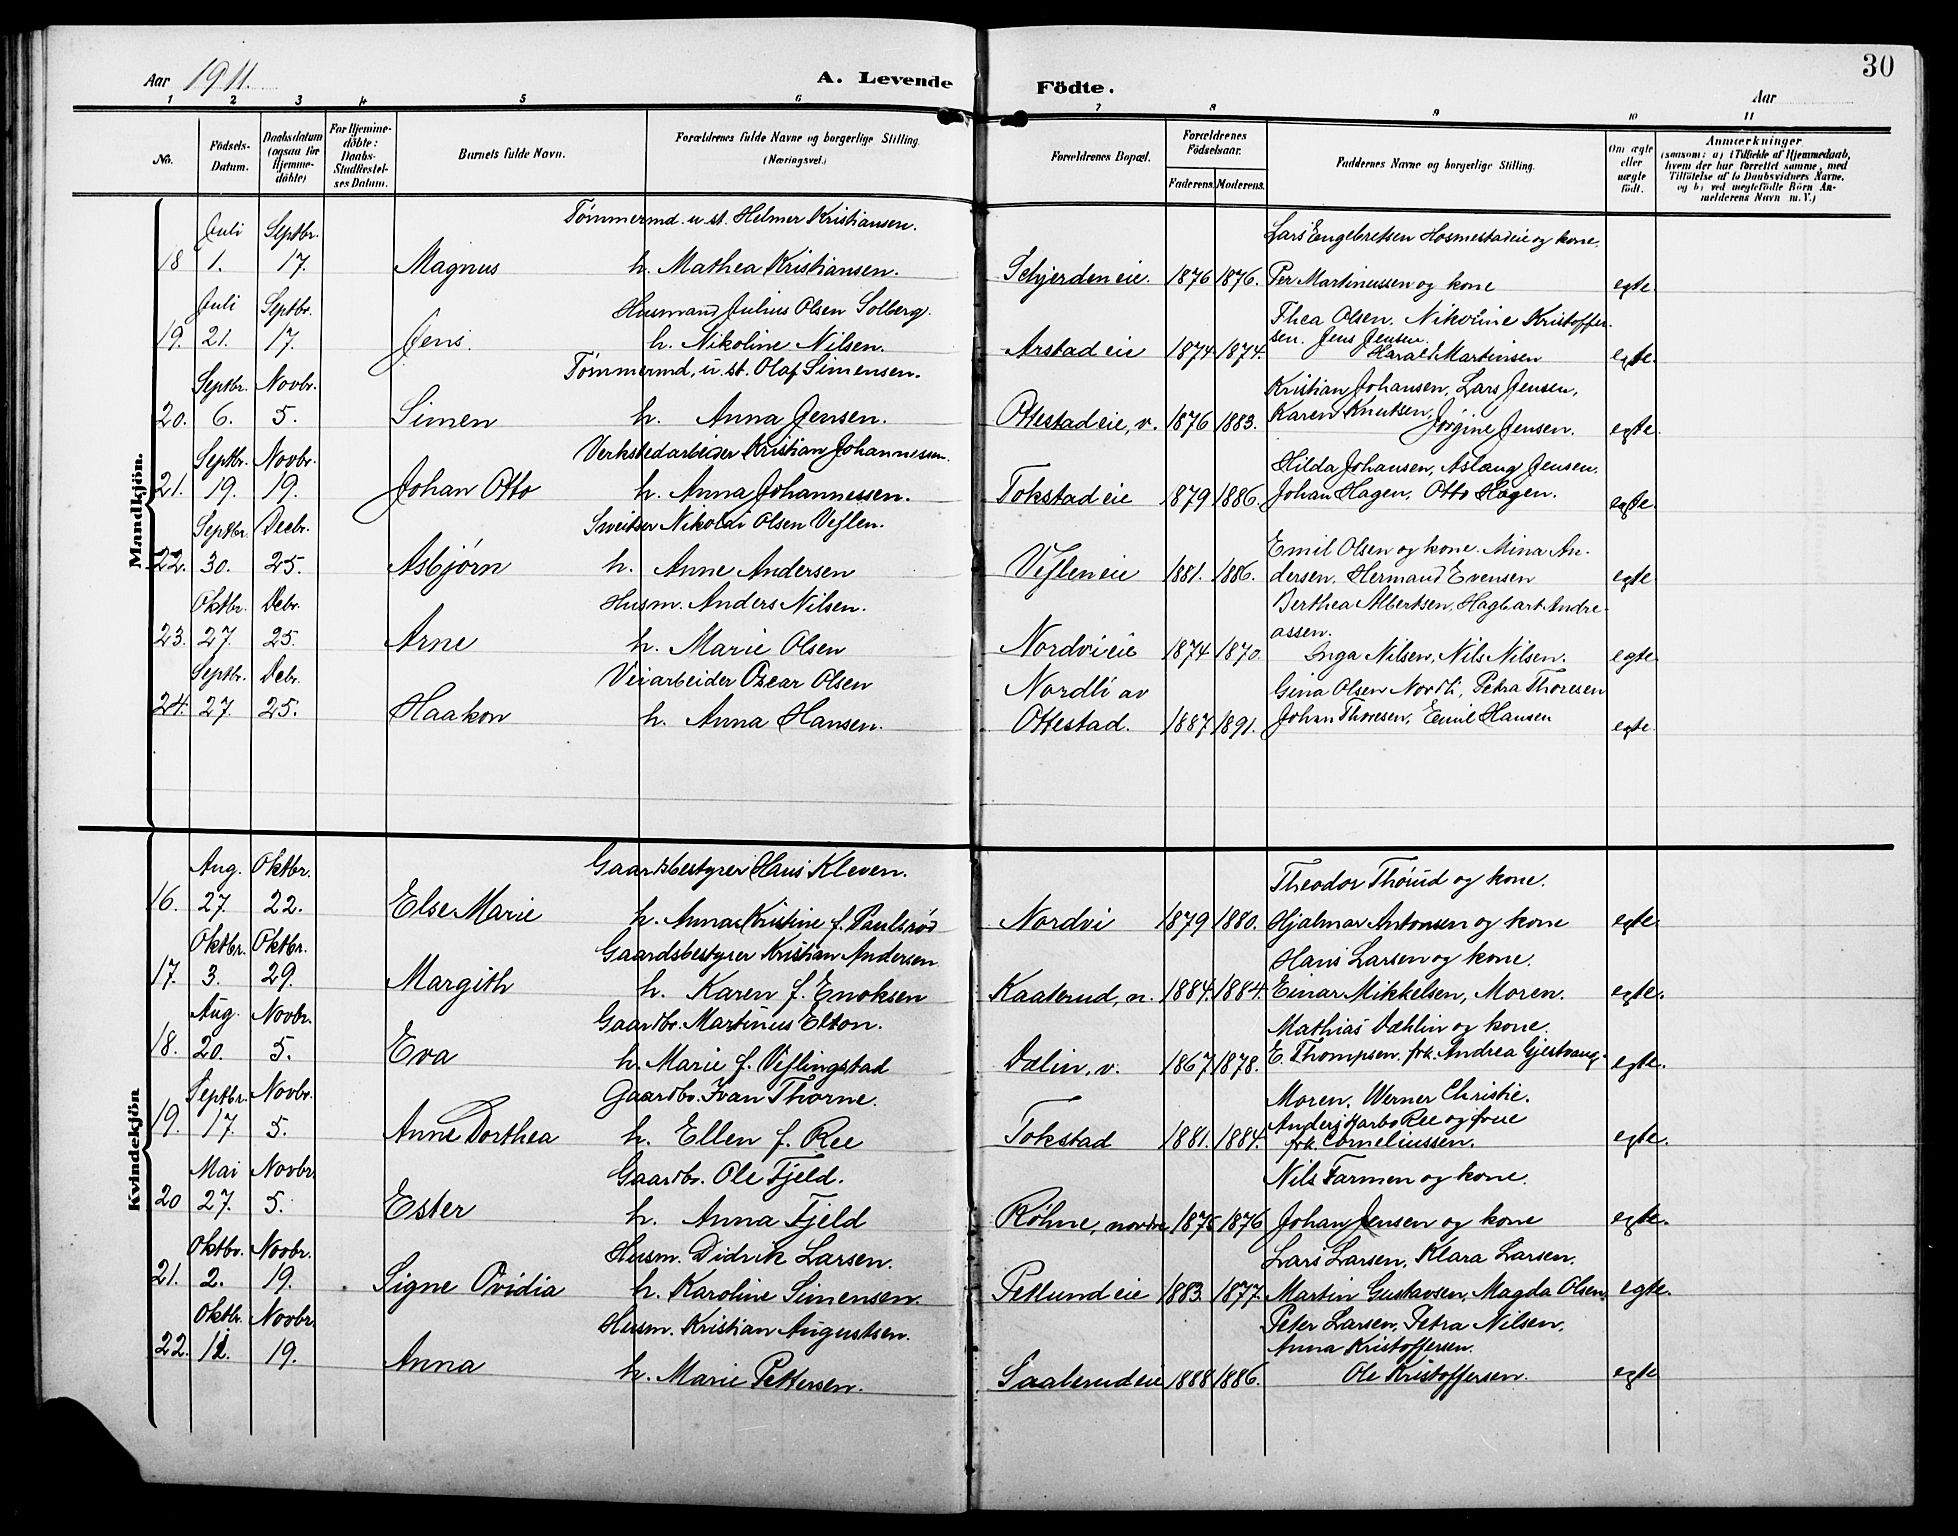 30
Aar 1911. A. Levende Födte. Aar
1 2 3 4 5 6 7 8 9 10 11
No. Födsels-Datum. Daabsdatum (ogsaa for Hjemme-döbte) For Hjemme-döbte: Daabs-Stadfæstel-ses Datum. Barnets fulde Navn. Forældrenes fulde Navne og borgerlige Stilling. (Næringsvei.) Forældrenes Bopæl. Forældrenes Födselsaar. Faderens. Moderens. Faddernes Navne og borgerlige Stilling. Om ægte eller uægte födt. Anmærkninger (saasom: a) i Tilfælde af Hjemmedaab, hvem der har forrettet samme, med Tilföielse af to Daabsvidners Navne, og b) ved uægtefödte Börn An-melderens Navn m. V.)
Mandkjön.
Juli Septbr. Tømmermd. u. st. Helmer Kristiansen. Lars Engebretsen Hosmestadeie og kone.
18 1. 17. Magnus h. Mathea Kristiansen. Schjerden eie. 1876 1876. Per Martinussen og kone egte.
Juli Septbr. Husmand Julius Olsen Solberg. Thea Olsen, Nikoline Kristoffer-
19. 21. 17. Jens. h. Nikoline Nilsen. Arstad eie 1874 1874. sen. Jens Jensen. Harald Martinsen egte.
Septbr. Novbr. Tømmermd, u. st. Olaf Simensen. Kristian Johansen, Lars Jensen,
20. 6. 5. Simen h. Anna Jensen. Ottestad eie, v. 1876 1883. Karen Knutsen, Jørgine Jensen. egte.
Septbr. Novbr. Verkstedarbeider Kristian Johannessen. Hilda Johansen, Aslaug Jensen.
21. 19. 19. Johan Otto h. Anna Johannessen. Tokstad eie 1879 1886. Johan Hagen, Otto Hagen. egte.
Septbr. Decbr. Sweitser Nikolai Olsen Veflen. Emil Olsen og kone. Mina An-
22. 30. 25. Asbjørn h. Anne Andersen Veflen eie 1881. 1886. dersen. Hermand Evensen egte
Oktbr. Debr. Husm. Anders Nilsen. Berthea Albertsen, Hagbart Andre-
assen.
23. 27. 25. Arne h. Marie Olsen Nordvi eie 1874 1870. Inga Nilsen, Nils Nilsen. egte.
Septbr. Debr. Veiarbeider Oscar Olsen Nordli av Gina Olsen Nordli, Petra Thoresen
24. 27. 25. Haakon h. Anna Hansen. Ottestad. 1887 1891. Johan Thoresen, Emil Hansen egte.
Kvindekjön
Aug. Oktbr. Gaardsbestyrer Hans Kleven. Theodor Thorud og kone.
16. 27. 22. Else Marie h. Anna Kristine f. Paulsrød Nordvi 1879 1880. Hjalmar Antonsen og kone egte.
Oktbr. Oktbr. Gaardsbestyrer Kristian Andersen Hans Larsen og kone.
17. 3. 29. Margith h. Karen f. Enoksen Kaaterud, n. 1884. 1884. Einar Mikkelsen, Moren. egte.
Aug. Novbr. Gaardbr. Martinus Elton. Mathias Dæhlin og kone.
18. 20. 5. Eva h. Marie f. Veflingstad Dælin, v. 1867 1878. E. Thompsen. frk. Andrea Gjestvang. egte.
Septbr. Novbr. Gaardbr. Ivan Thorne. Moren. Werner Christie.
19. 17. 5. Anne Dorthea h. Ellen f. Ree Tokstad 1881. 1884. Anders Harbo Ree og frue frk. Corneliussen. egte.
Mai Novbr. Gaardbr. Ole Fjeld. Nils Farmen og kone.
20 27. 5. Ester h. Anna Fjeld Røhne, nordre 1875 1876 Johan Jensen og kone egte.
Oktbr. Novbr. Husm. Didrik Larsen. Lars Larsen, Klara Larsen.
21. 2. 19. Signe Ovidia h. Karoline Simensen. Petlund eie 1883. 1877. Martin Gustavsen, Magda Olsen. egte.
Oktbr. Novbr. Husm. Kristian Augustsen. Peter Larsen, Petra Nilsen,
Anna Kristoffersen.
22. 12. 19. Anna h. Marie Pettersen. Saalerud eie 1888 1886. Ole Kristoffersen. egte